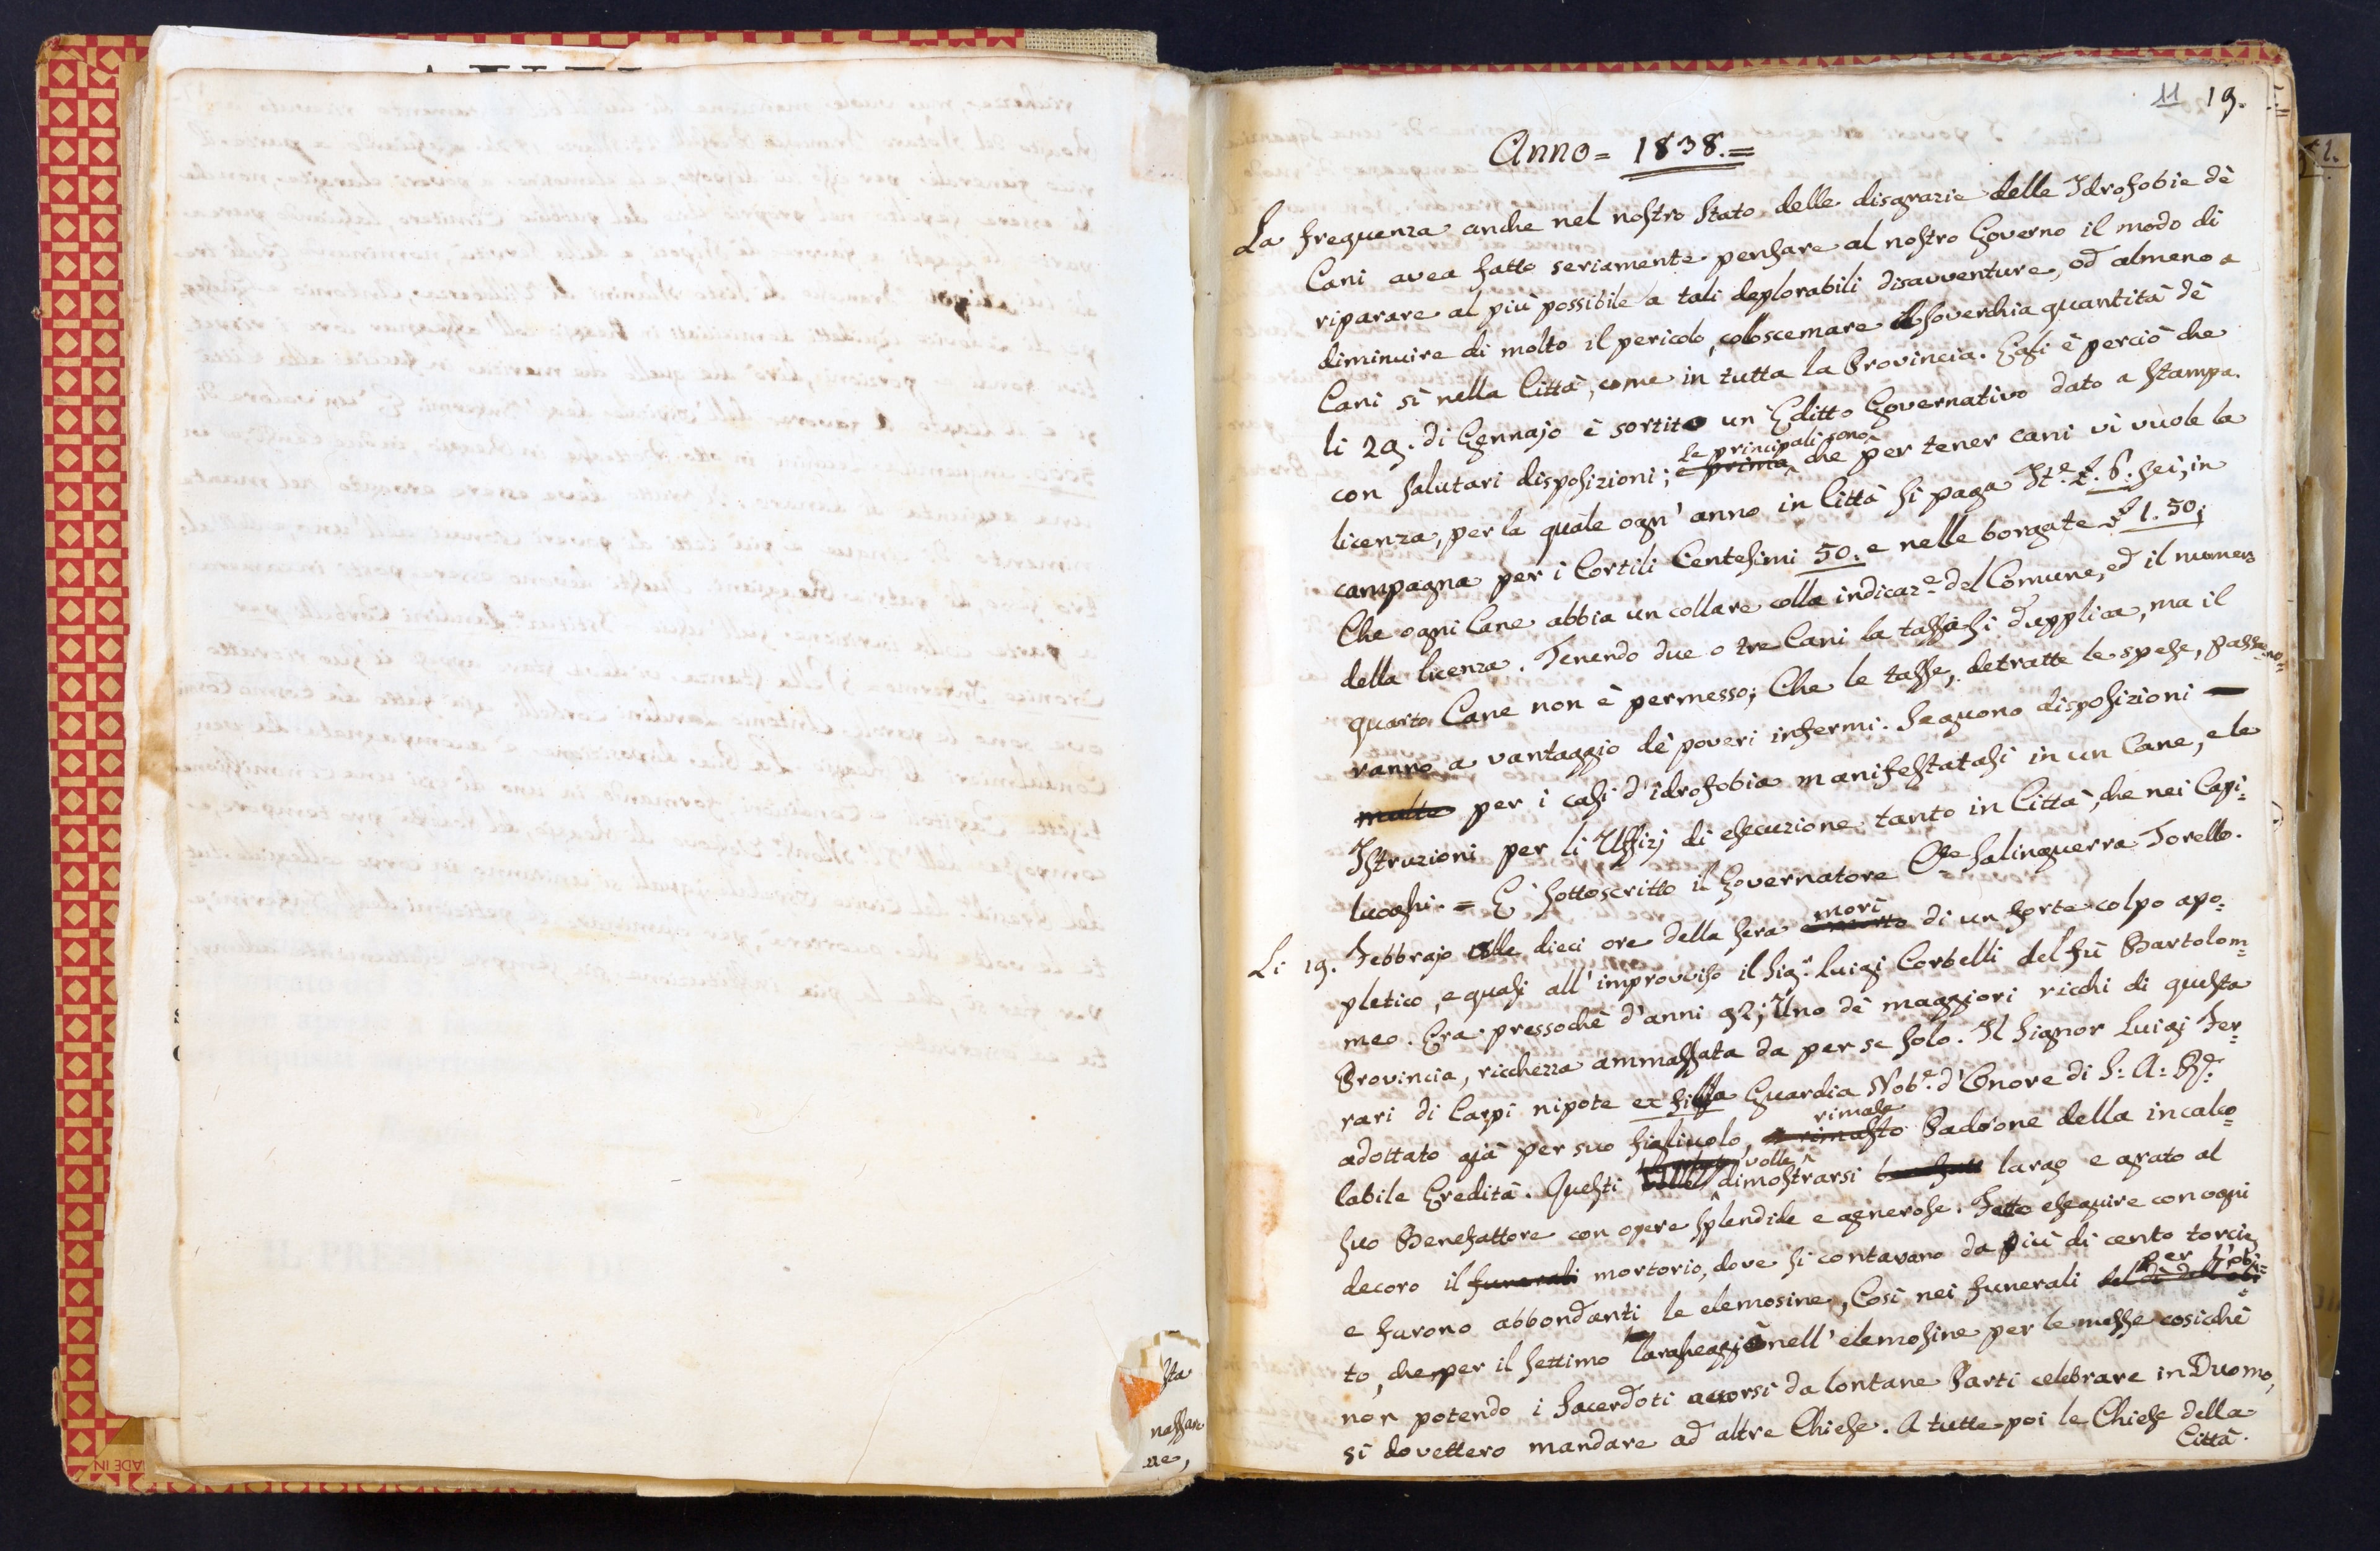 11 19.
Anno = 1838. =
La frequenza anche nel nostro Stato delle disgrazie delle Idrofobie dè
Cani avea fatto seriamente pensare al nostro Governo il modo di
riparare al più possibile a tali deplorabili disavventure, od almeno a
diminuire di molto il pericolo, collo scemare la soverchia quantità dè
Cani sì nella Città, come in tutta la Provincia. Egli è perciò che
li 29. di Gennajo è sortito un' Editto Governativo dato a stampa.
con salutari disposizioni; e prima le principali sono che per tener cani vi vuole la
licenza, per la quale ogn' anno in Città si paga It.e £. 6. sei, in
campagna per i Cortili Centesimi 50. e nelle borgate £ 1. 50;
Che ogni Cane abbia un collare colla indicaz.e del Comune, ed il numero
della licenza. Tenendo due o tre Cani la tassa si duplica, ma il
quarto Cane non è permesso; Che le tasse, detratte le spese, passe=
ranno a vantaggio dè poveri infermi. Seguono disposizioni
molte per i casi d'idrofobia manifestatasi in un Cane, e le
Istruzioni per li Uffizj di esecuzione tanto in Città, che nei Capi=
luoghi. = E' sottoscritto il Governatore Cte Salinguerra Torello.
Li 19. Febbrajo alle dieci ore della sera è morto morì di un forte colpo apo=
pletico, e quasi all' improvviso il Sig.r Luigi Corbelli del fù Bartolom=
meo. Era pressochè d'anni 92; Uno dè maggiori ricchi di questa
Provincia, ricchezza ammassata da per se solo. Il Signor Luigi Fer=
rari di Carpi nipote ex filia Guardia Nob.e d'Onore di S: A: R:
adottato già per suo figliuolo, è rimasto rimase Padrone della incalco=
labile Eredità. Questi volle dimostrarsi largo e grato al
suo Benefattore con opere splendide e generose. Fatto eseguire con ogni
decoro il funerali mortorio, dove si contavano da più di cento torcie,
e furono abbondanti le elemosine, Così nei funerali del dì dell'obi per l'obi=
to, che per il settimo largheggiò nell' elemosine per le messe cosicchè
non potendo i Sacerdoti accorsi da lontane Parti celebrare in Duomo,
si dovettero mandare ad altre Chiese. A tutte poi le Chiese della
Città.
sta
nassare
ue,